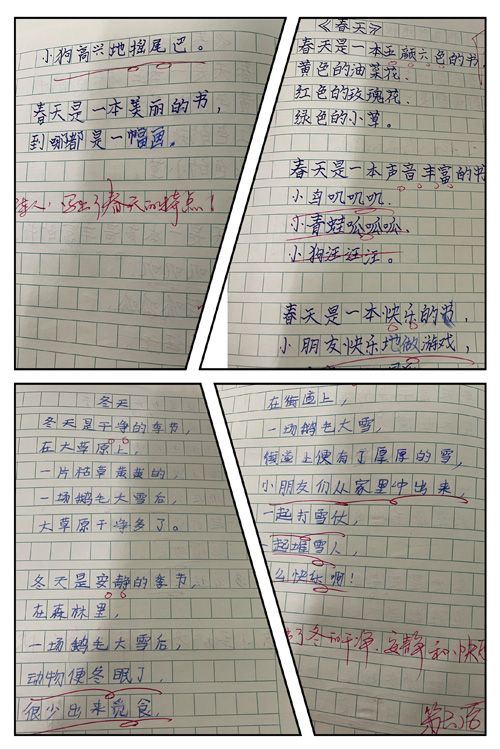 小狗高兴地摇尾巴。
春天是一本美丽的书,
到哪都是一幅画。
诗人!写出了春天的特点!
《春天》
春天是一本五颜六色的书,
黄色的油菜花.
红色的玫瑰花.
绿色的小草。
春天是一本声音丰富的书
小鸟叽叽叽.
小青蛙呱呱呱.
小狗汪汪汪。
春天是一本快乐的书,
小朋友快乐地做游戏,
冬天
冬天是干净的季节,
在大草原上,
一片枯草黄黄的,
一场鹅毛大雪后,
大草原干净多了。
冬天是安静的季节,
在森林里,
一场鹅毛大雪后,
动物便冬眠了,
很少出来觅食,
在街道上,
一场鹅毛大雪,
街道上便有了厚厚的雪,
小朋友们从家里冲出来,
一起打雪仗,
一起堆雪人,
么快乐啊!
了冬的干净、安静和快